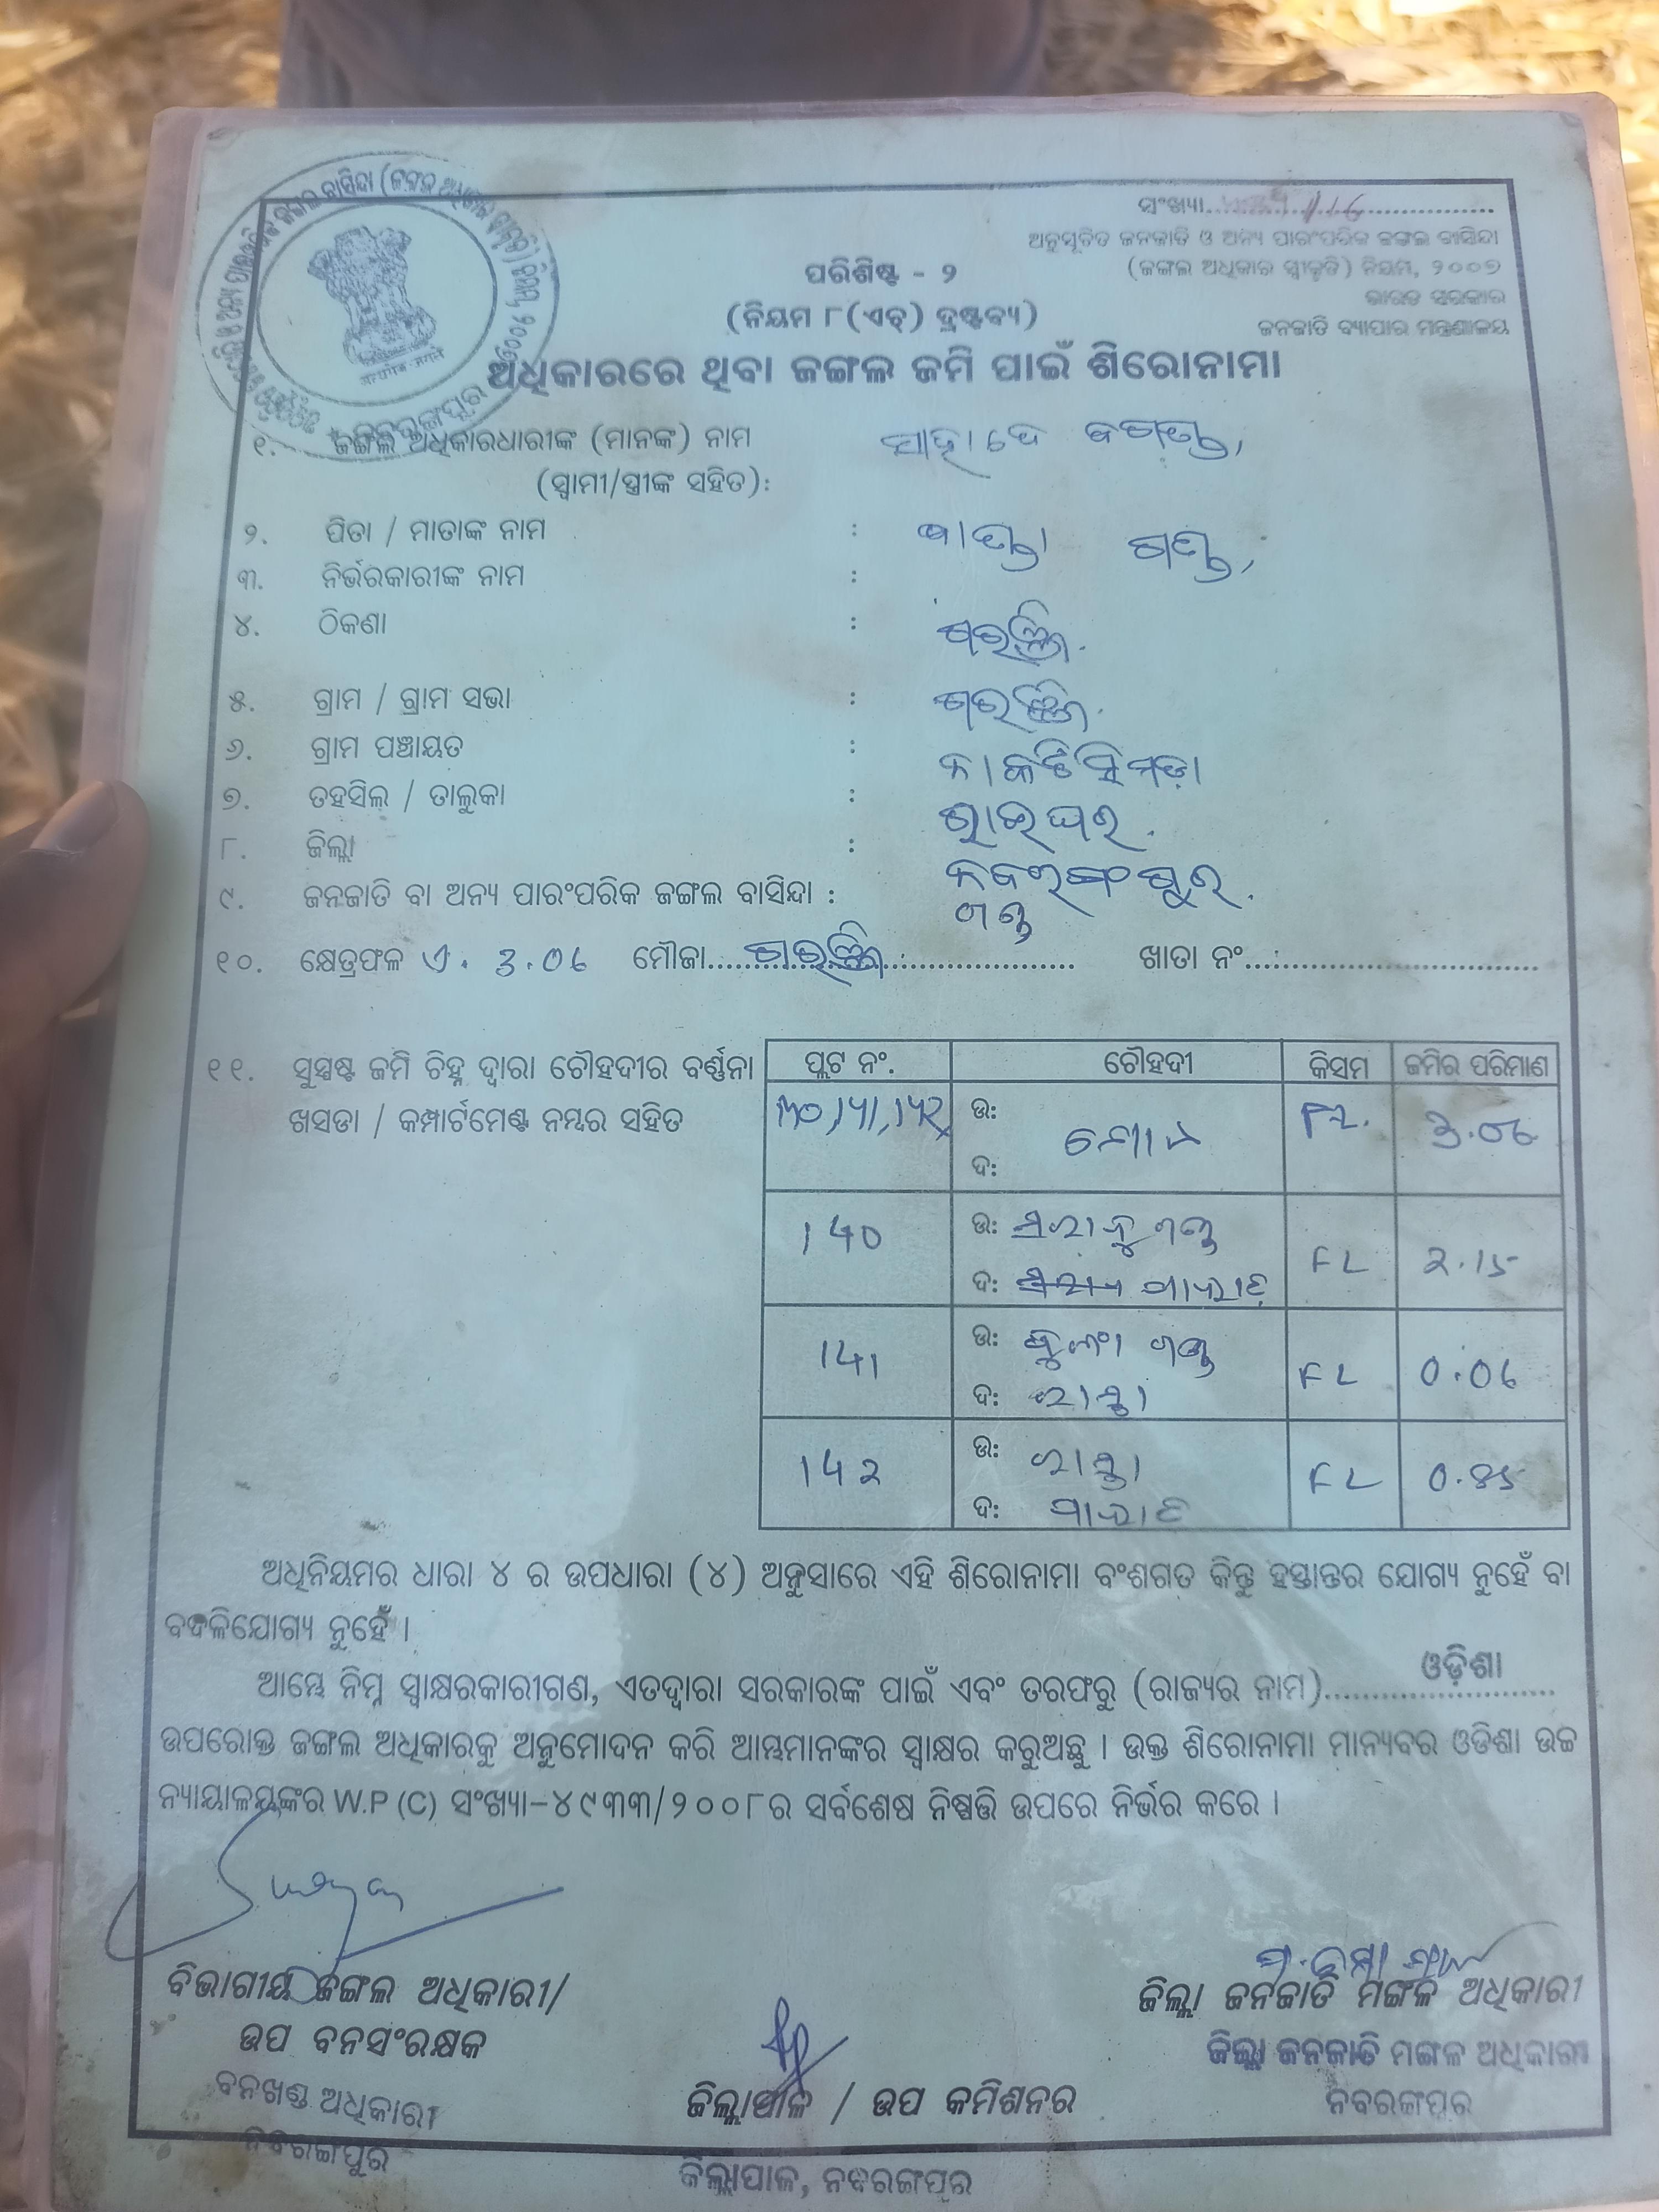 ସଂଖ୍ୟା
ଅନୁସୂଚିତ ଜନଜାତି ଓ ଅନ୍ୟ ପାରଂପରିକ ଜଙ୍ଗଲ ବାସିନ୍ଦା
(ଜଙ୍ଗଲ ଅଧିକାର ସ୍ୱୀକୃତି) ନିୟମ, ୨୦୦୭
ଭାରତ ସରକାର
ଜନଜାତି ବ୍ୟାପାର ମନ୍ତ୍ରଣାଳୟ
ପରିଶିଷ୍ଟ - ୨
(ନିୟମ ୮(ଏଚ୍) ଦ୍ରଷ୍ଟବ୍ୟ)
ଅଧିକାରରେ ଥିବା ଜଙ୍ଗଲ ଜମି ପାଇଁ ଶିରୋନାମା
୧. ଜଙ୍ଗଲ ଅଧିକାରଧାରୀଙ୍କ (ମାନଙ୍କ) ନାମ
(ସ୍ୱାମୀ/ସ୍ତ୍ରୀଙ୍କ ସହିତ):
୨. ପିତା / ମାତାଙ୍କ ନାମ : ଗଣ୍ଡ
୩. ନିର୍ଭରକାରୀଙ୍କ ନାମ :
୪. ଠିକଣା :
୫. ଗ୍ରାମ / ଗ୍ରାମ ସଭା :
୬. ଗ୍ରାମ ପଞ୍ଚାୟତ :
୭. ତହସିଲ୍ / ତାଲୁକା : ରାଇଘର
୮. ଜିଲ୍ଲା : ନବରଙ୍ଗପୁର
୯. ଜନଜାତି ବା ଅନ୍ୟ ପାରଂପରିକ ଜଙ୍ଗଲ ବାସିନ୍ଦା : ଗଣ୍ଡ
୧୦. କ୍ଷେତ୍ରଫଳ ଏ. 3.06 ମୌଜା ଖାତା ନଂ
୧୧. ସୁସ୍ପଷ୍ଟ ଜମି ଚିହ୍ନ ଦ୍ୱାରା ଚୌହଦୀର ବର୍ଣ୍ଣନା
ଖସଡା / କମ୍ପାର୍ଟମେଣ୍ଟ ନମ୍ବର ସହିତ
ପ୍ଲଟ ନଂ. ଚୌହଦୀ କିସମ ଜମିର ପରିମାଣ
ଉ: FL. 3.06
ଦ:
140 ଉ: ଗଣ୍ଡ FL 2.15
ଦ: ପାହାଡ଼
141 ଉ: ଗଣ୍ଡ FL 0.06
ଦ: ରାସ୍ତା
142 ଉ: ରାସ୍ତା FL 0.85
ଦ: ପାହାଡ଼
ଅଧିନିୟମର ଧାରା ୪ ର ଉପଧାରା (୪) ଅନୁସାରେ ଏହି ଶିରୋନାମା ବଂଶଗତ କିନ୍ତୁ ହସ୍ତାନ୍ତର ଯୋଗ୍ୟ ନୁହେଁ ବା
ବଦଳିଯୋଗ୍ୟ ନୁହେଁ ।
ଆମ୍ଭେ ନିମ୍ନ ସ୍ୱାକ୍ଷରକାରୀଗଣ, ଏତଦ୍ୱାରା ସରକାରଙ୍କ ପାଇଁ ଏବଂ ତରଫରୁ (ରାଜ୍ୟର ନାମ) ଓଡ଼ିଶା
ଉପରୋକ୍ତ ଜଙ୍ଗଲ ଅଧିକାରକୁ ଅନୁମୋଦନ କରି ଆମ୍ଭମାନଙ୍କର ସ୍ୱାକ୍ଷର କରୁଅଛୁ । ଉକ୍ତ ଶିରୋନାମା ମାନ୍ୟବର ଓଡିଶା ଉଚ୍ଚ
ନ୍ୟାୟାଳୟଙ୍କର W.P (C) ସଂଖ୍ୟା–୪୯୩୩/୨୦୦୮ର ସର୍ବଶେଷ ନିଷ୍ପତ୍ତି ଉପରେ ନିର୍ଭର କରେ ।
ବିଭାଗୀୟ ଜଙ୍ଗଲ ଅଧିକାରୀ/
ଉପ ବନସଂରକ୍ଷକ
ବନଖଣ୍ଡ ଅଧିକାରୀ
ନବରଙ୍ଗପୁର
ଜିଲ୍ଲାପାଳ / ଉପ କମିଶନର
ଜିଲ୍ଲାପାଳ, ନବରଙ୍ଗପୁର
ଜିଲ୍ଲା ଜନଜାତି ମଙ୍ଗଳ ଅଧିକାରୀ
ଜିଲ୍ଲା ଜନଜାତି ମଙ୍ଗଳ ଅଧିକାରୀ
ନବରଙ୍ଗପୁର